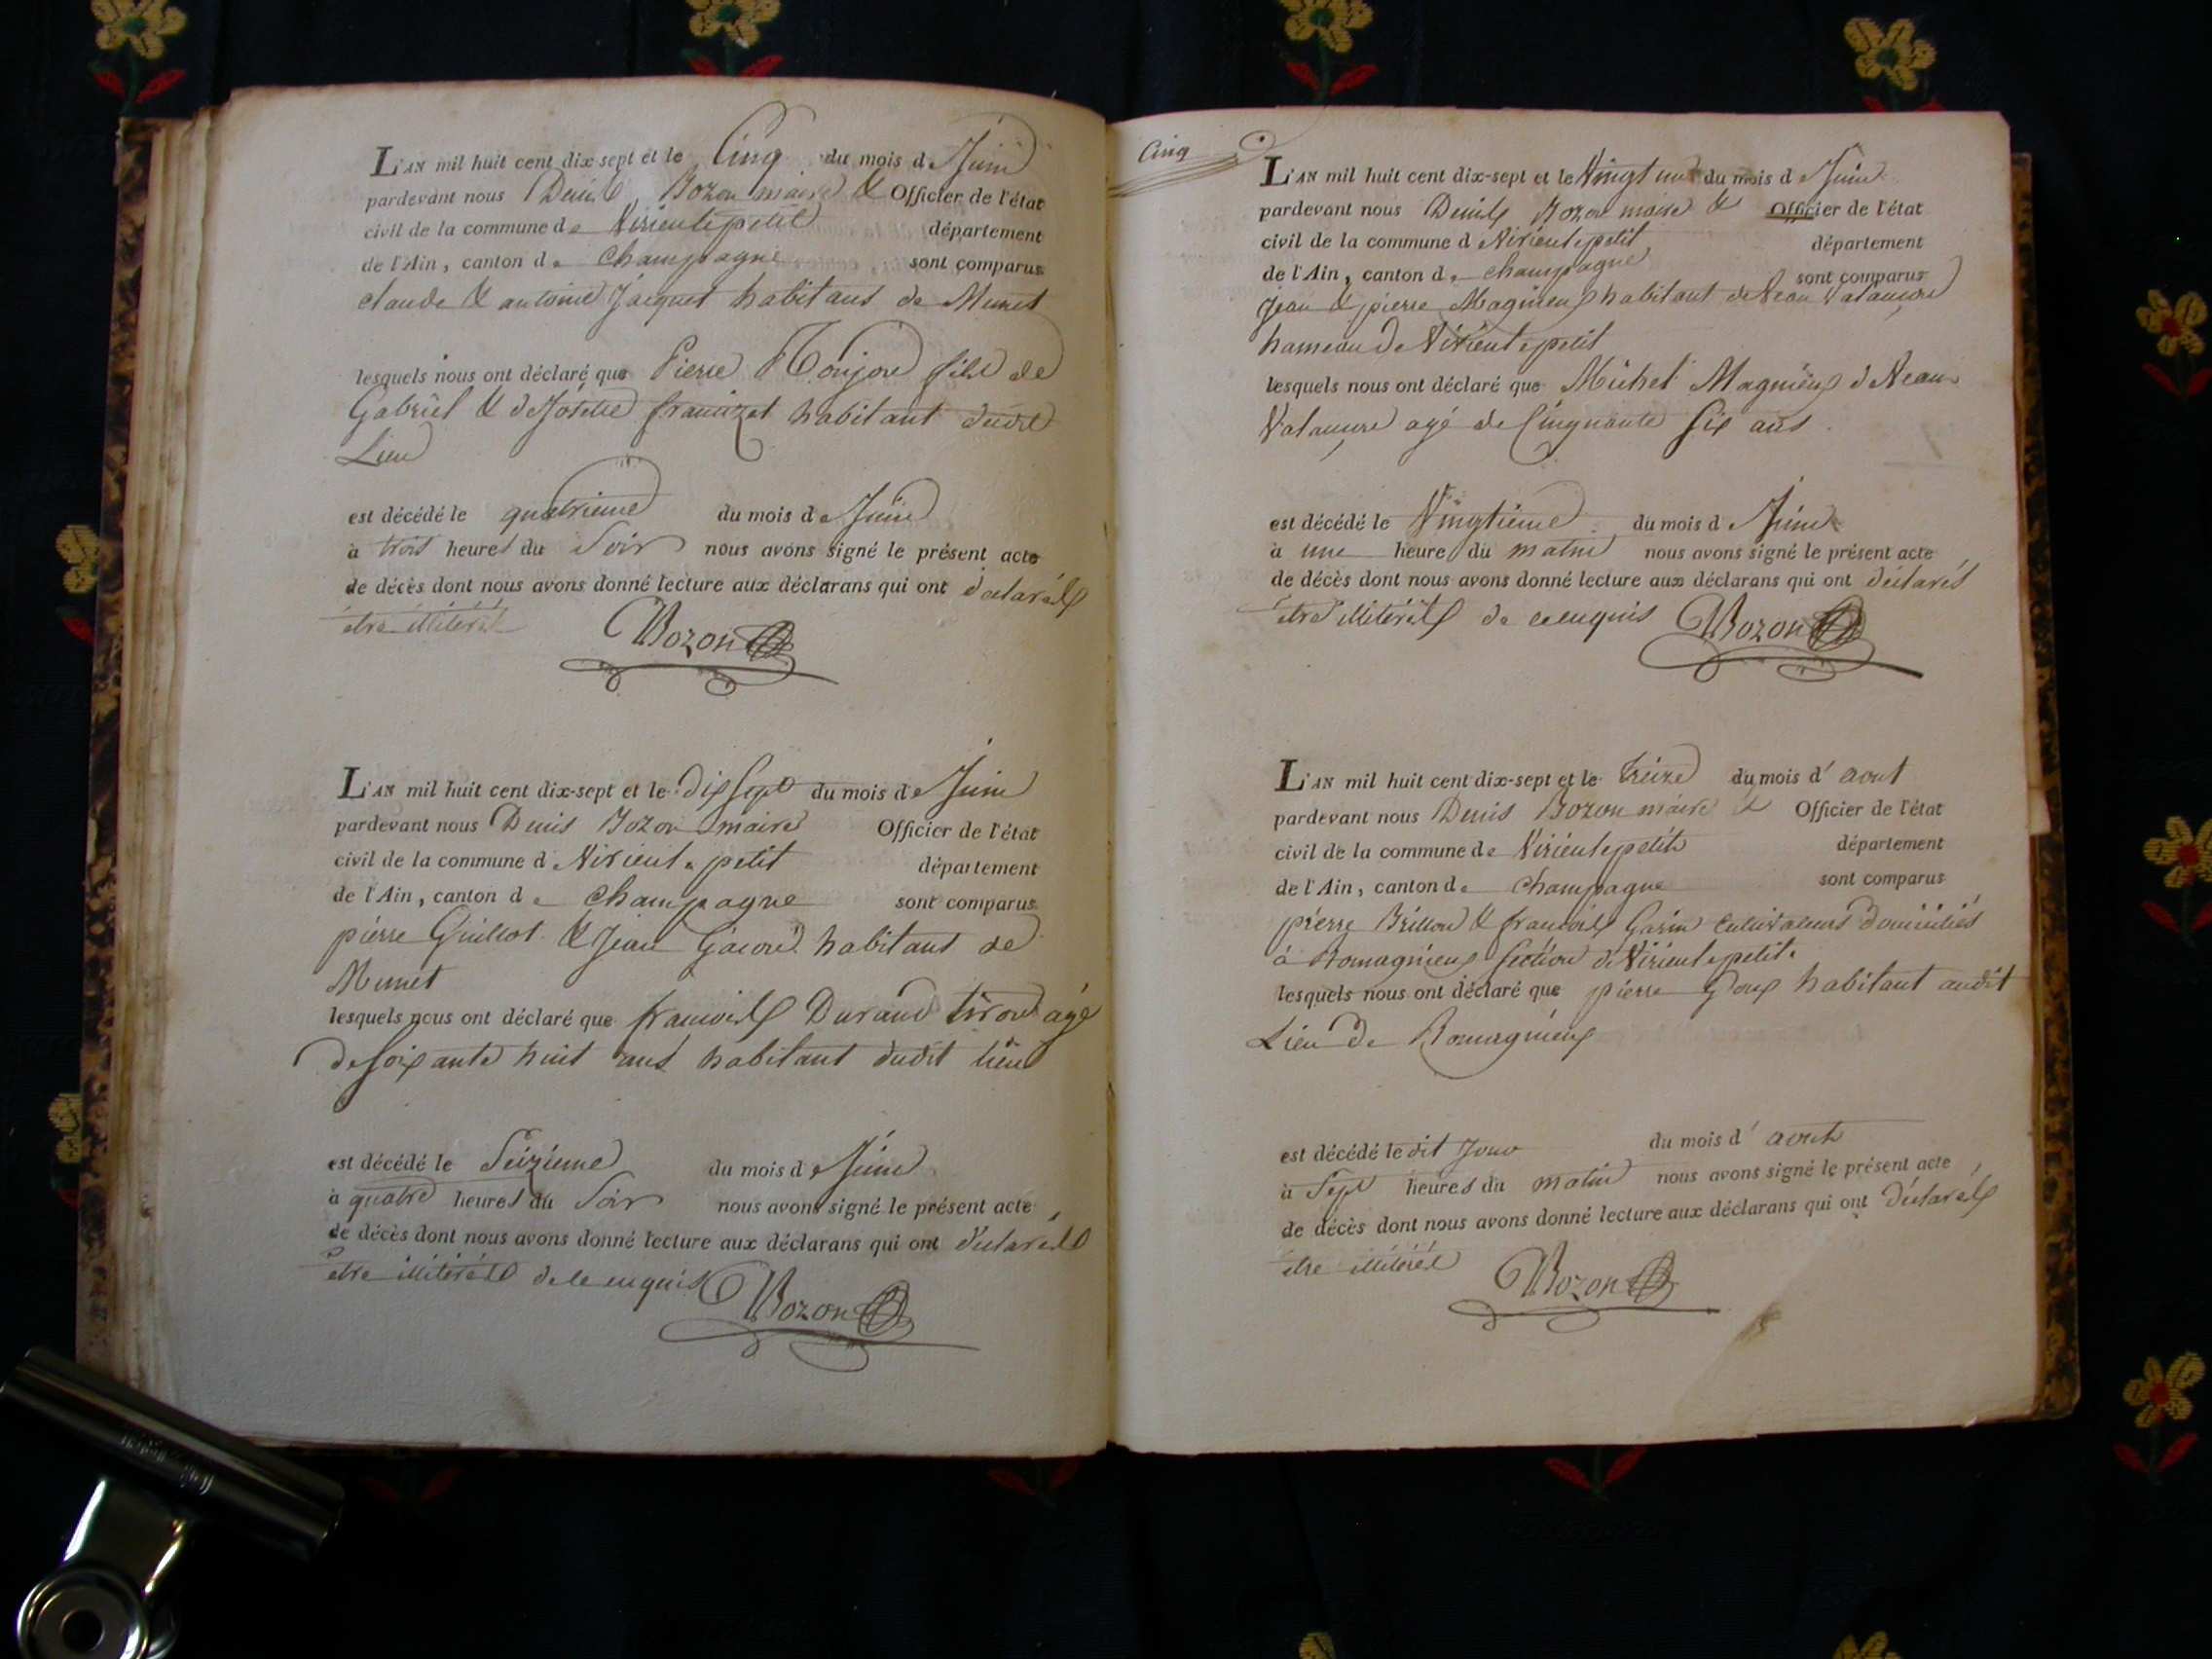 L'AN mil huit cent dix-sept et le Cinq du mois de Juin
pardevant nous Denis Bozon maire & Officier de l'état
civil de la commune de Virieulepetit département
de l'Ain, canton de Champagne sont comparus
claude & antoine Jacquet habitans de Munet
lesquels nous ont déclaré que Pierre fils de
Gabriel & de habitant dudit
Lieu
est décédé le quatrieme du mois de Juin
à trois heures du Soir nous avons signé le présent acte
de décès dont nous avons donné lecture aux déclarans qui ont declarés
etre illiterés
Bozon
L'AN mil huit cent dix-sept et le dix Sept du mois de Juin
pardevant nous Denis Bozon maire Officier de l'état
civil de la commune d Virieule petit département
de l'Ain, canton de Champagne sont comparus
pierre Guillot & Jean habitans de
Munet
lesquels nous ont déclaré que francois Durand tiron agé
de soixante huit ans habitant dudit lieu
est décédé le Seizieme du mois de Juin
à quatre heures du Soir nous avons signé le présent acte
de décès dont nous avons donné lecture aux déclarans qui ont declarés
etre illiterés de ce enquis
Bozon
Cinq
L'AN mil huit cent dix-sept et le Vingt un du mois de Juin
pardevant nous Denis Bozon maire & Officier de l'état
civil de la commune d Virieulepetit département
de l'Ain, canton de Champagne sont comparus
Jean & pierre Magnieux habitant
hameau de Virieulepetit
lesquels nous ont déclaré que Michel Magnieux
agé de Cinquante Six ans
est décédé le Vingtieme du mois de Juin
à une heure du matin nous avons signé le présent acte
de décès dont nous avons donné lecture aux déclarans qui ont déclarés
etre illiterés de ce enquis
Bozon
L'AN mil huit cent dix-sept et le treize du mois d'aout
pardevant nous Denis Bozon maire & Officier de l'état
civil de la commune de Virieulepetit département
de l'Ain, canton de Champagne sont comparus
pierre Brillon & francois Garin cultivateurs domiciliés
à Romagnieux Section de Virieulepetit
lesquels nous ont déclaré que pierre habitant audit
Lieu de Romagnieux
est décédé le dit Jour du mois d'aout
à Sept heures du matin nous avons signé le présent acte
de décès dont nous avons donné lecture aux déclarans qui ont déclarés
etre illiterés
Bozon